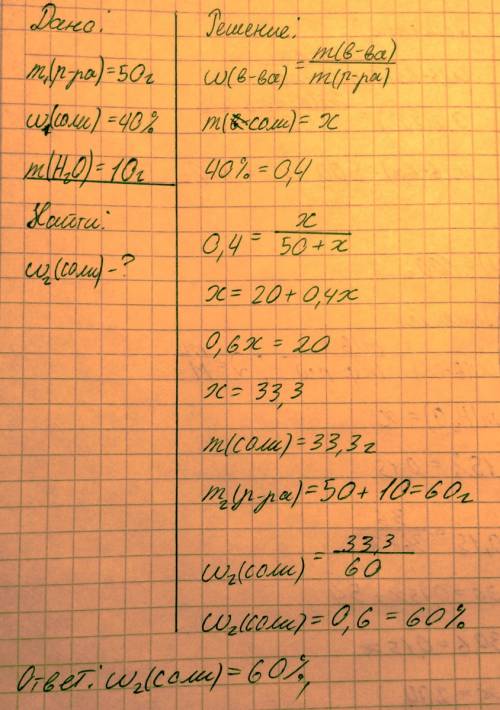 Дано:
m₁(р-ра)=50г
w₁(соли)=40%
m(H₂O)=10г
Найти:
w₂(соли)-?
Решение:
w(в-ва) = m(в-ва)
m(р-ра)
m(соли)=x
40%=0,4
0,4 = x
50+x
x=20+0,4x
0,6x=20
x=33,3
m(соли)=33,3г
m₂(р-ра)=50+10=60г
w₂(соли) = 33,3
60
w₂(соли)=0,6=60%
Ответ: w₂(соли)=60%,